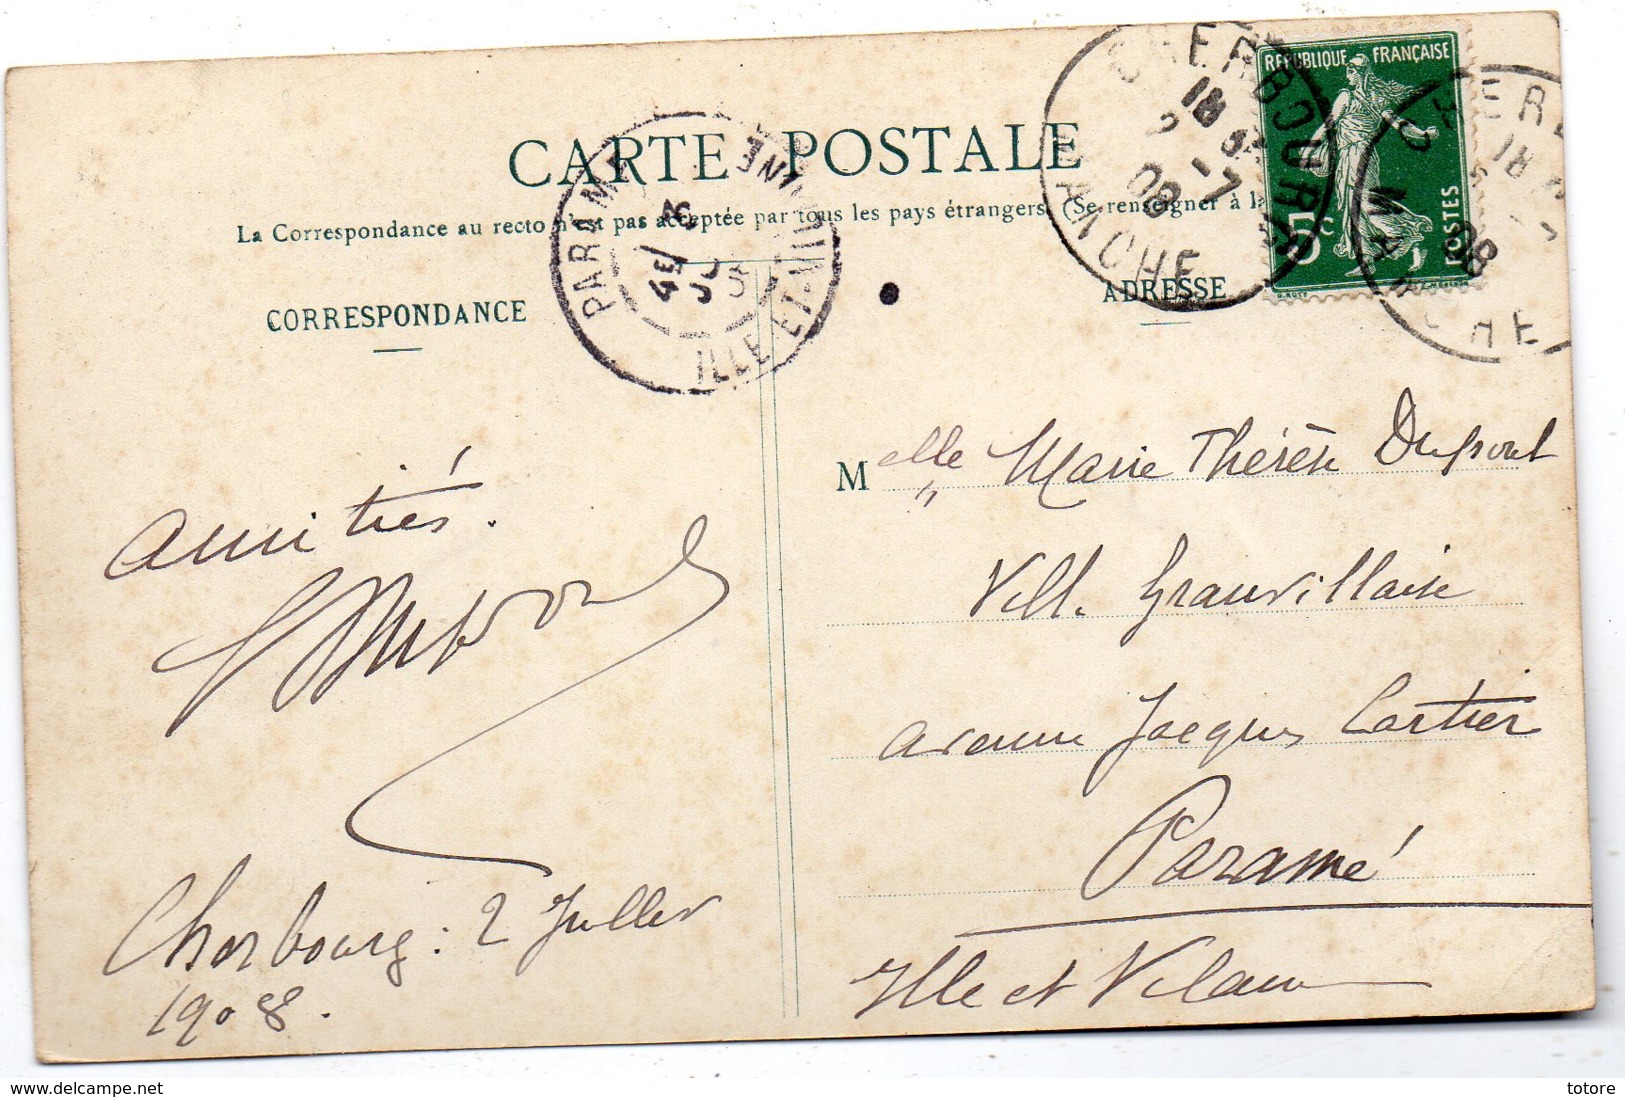 CARTE POSTALE
La Correspondance au recto n'est pas acceptée par tous les pays étrangers (Se renseigner à la
CORRESPONDANCE
ADRESSE
RÉPUBLIQUE FRANÇAISE
5c
POSTES
CHERBOURG
18
2 -7
08
MANCHE
PARAMÉ
ILLE-ET-VILAINE
08
MANCHE
amitiés.
Cherbourg : 2 Juillet
1908.
Melle Marie Thérèse Dupont
Vill. Granvillaise
avenue Jacques Cartier
Paramé
Ille et Vilaine
www.delcampe.net
totore